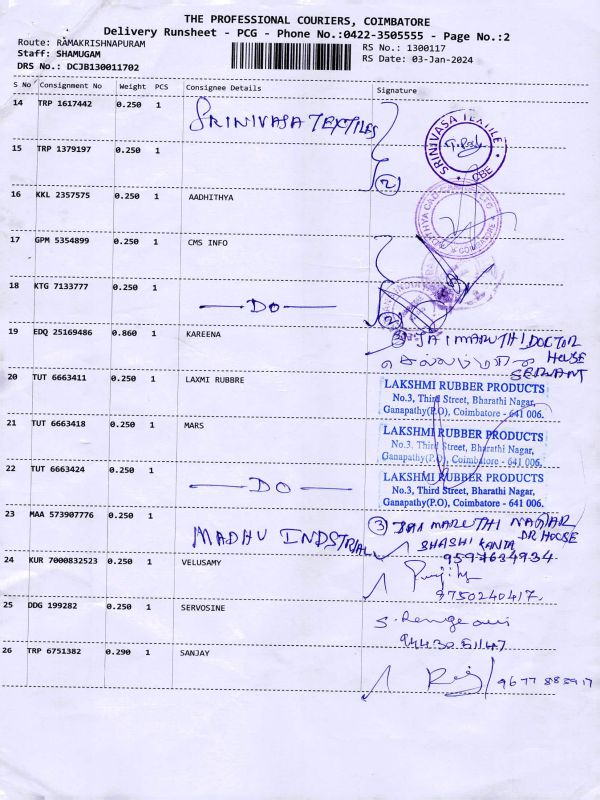 THE PROFESSIONAL COURIERS, COIMBATORE
Delivery Runsheet - PCG - Phone No.:0422-3505555 - Page No.:2
Route: RAMAKRISHNAPURAM
Staff: SHAMUGAM
DRS No.: DCJB130011702
RS No.: 1300117
RS Date: 03-Jan-2024
S No Consignment No Weight PCS Consignee Details Signature
14 TRP 1617442 0.250 1 SRINIVASA TEXTILES
SRINIVASA TEXTILE
CBE
15 TRP 1379197 0.250 1
2
16 KKL 2357575 0.250 1 AADHITHYA
COIMBATORE
17 GPM 5354899 0.250 1 CMS INFO
18 KTG 7133777 0.250 1 DO
2
19 EDQ 25169486 0.860 1 KAREENA
SAI MARUTHI DOCTOR
HOUSE
SERVANT
20 TUT 6663411 0.250 1 LAXMI RUBBRE
LAKSHMI RUBBER PRODUCTS
No.3, Third Street, Bharathi Nagar,
Ganapathy(P.O), Coimbatore - 641 006.
21 TUT 6663418 0.250 1 MARS
LAKSHMI RUBBER PRODUCTS
No.3, Third Street, Bharathi Nagar,
Ganapathy(P.O), Coimbatore - 641 006.
22 TUT 6663424 0.250 1 DO
LAKSHMI RUBBER PRODUCTS
No.3, Third Street, Bharathi Nagar,
Ganapathy(P.O), Coimbatore - 641 006.
23 MAA 573907776 0.250 1 MADHU INDSTRIAL
3 SAI MARUTHI NAGAR
DR HOUSE
SHASHI KANTA
9597634934
24 KUR 7000832523 0.250 1 VELUSAMY
9750240417.
25 DDG 199282 0.250 1 SERVOSINE
26 TRP 6751382 0.290 1 SANJAY